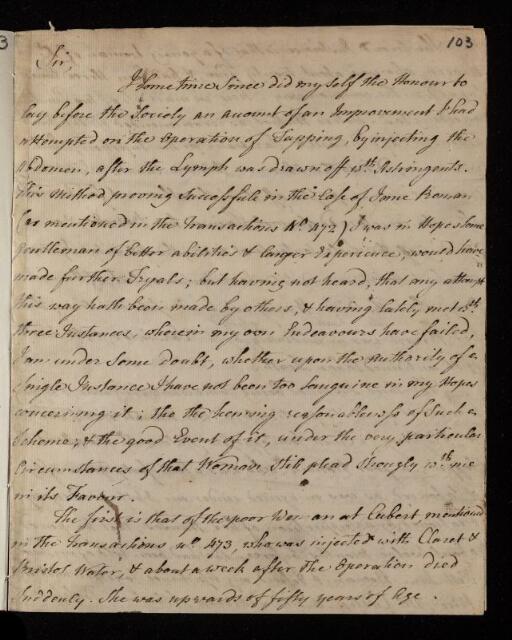 103
Sir,
I Some time Since did my self the Honour to
lay before the Society an account of an Improvement I had
attempted on the Operation of Tapping, by injecting the
Abdomen, after the Lymph was drawn off wth. Astringents.
This Method proving Successfull in the Case of Jane Roman
(as mentioned in the Transactions No. 473) I was in Hopes some
Gentleman of better abilities & larger Experience, would have
made further Tryals; but having not heard, that any attempt
this way hath been made by others, & having lately met wth.
three Instances, wherein my own Endeavours have failed,
I am under Some doubt, whether upon the Authority of a
Single Instance I have not been too Sanguine in my Hopes
concerning it; tho the seeming reasonableness of Such a
Scheme, & the good Event of it, under the very particular
Circumstances of that Woman, Still plead Strongly wth. me
in its Favour.
The first is that of the poor Woman at Cubert, mentioned
in the Transactions no. 473, who was injected with Claret &
Bristol Water, & about a week after the Operation died
Suddenly. She was upwards of fifty years of Age.